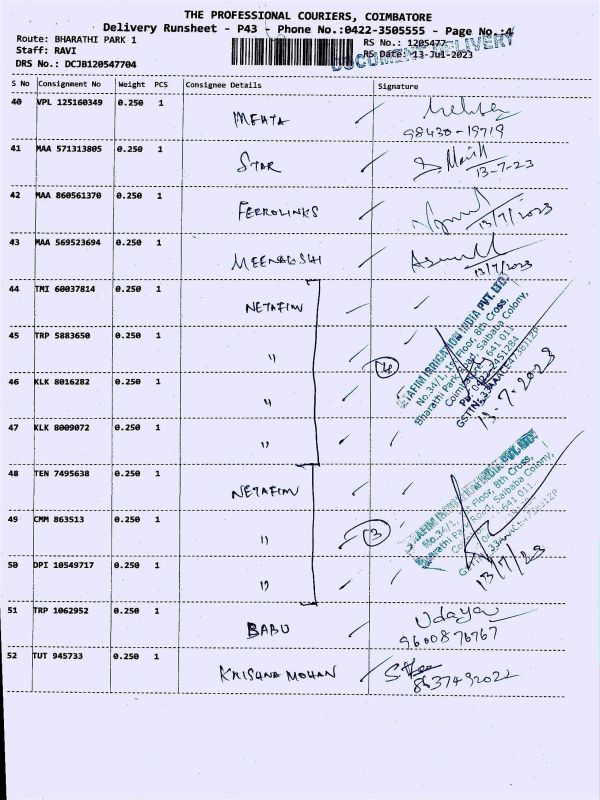 THE PROFESSIONAL COURIERS, COIMBATORE
Delivery Runsheet - P43 - Phone No.:0422-3505555 - Page No.:4
Route: BHARATHI PARK 1 RS No.: 1205477
DOCUMENT DELIVERY
Staff: RAVI RS Date: 13-Jul-2023
DRS No.: DCJB120547704
S No Consignment No Weight PCS Consignee Details Signature
40 VPL 125160349 0.250 1
MEHTA
98430-19719
41 MAA 571313805 0.250 1
STAR
13-7-23
42 MAA 860561370 0.250 1
FERROLINKS
13/7/2023
43 MAA 569523694 0.250 1
MEENAKSHI
13/7/2023
44 TMI 60037814 0.250 1
NETAFIM
45 TRP 5883650 0.250 1
"
4
46 KLK 8016282 0.250 1
"
47 KLK 8009072 0.250 1
"
NETAFIM IRRIGATION INDIA PVT. LTD.
No.34/1, 1st Floor, 8th Cross,
Bharathi Park Road, Saibaba Colony,
Coimbatore - 641 011
13-7-2023
48 TEN 7495638 0.250 1
NETAFIM
49 CMM 863513 0.250 1
"
3
50 DPI 10549717 0.250 1
"
No.34/1, Floor, 8th Cross,
Bharathi Park Road, Saibaba Colony,
641 011.
13/7/23
51 TRP 1062952 0.250 1
BABU
Udaya
9600876767
52 TUT 945733 0.250 1
KRISHNA MOHAN
8637492022